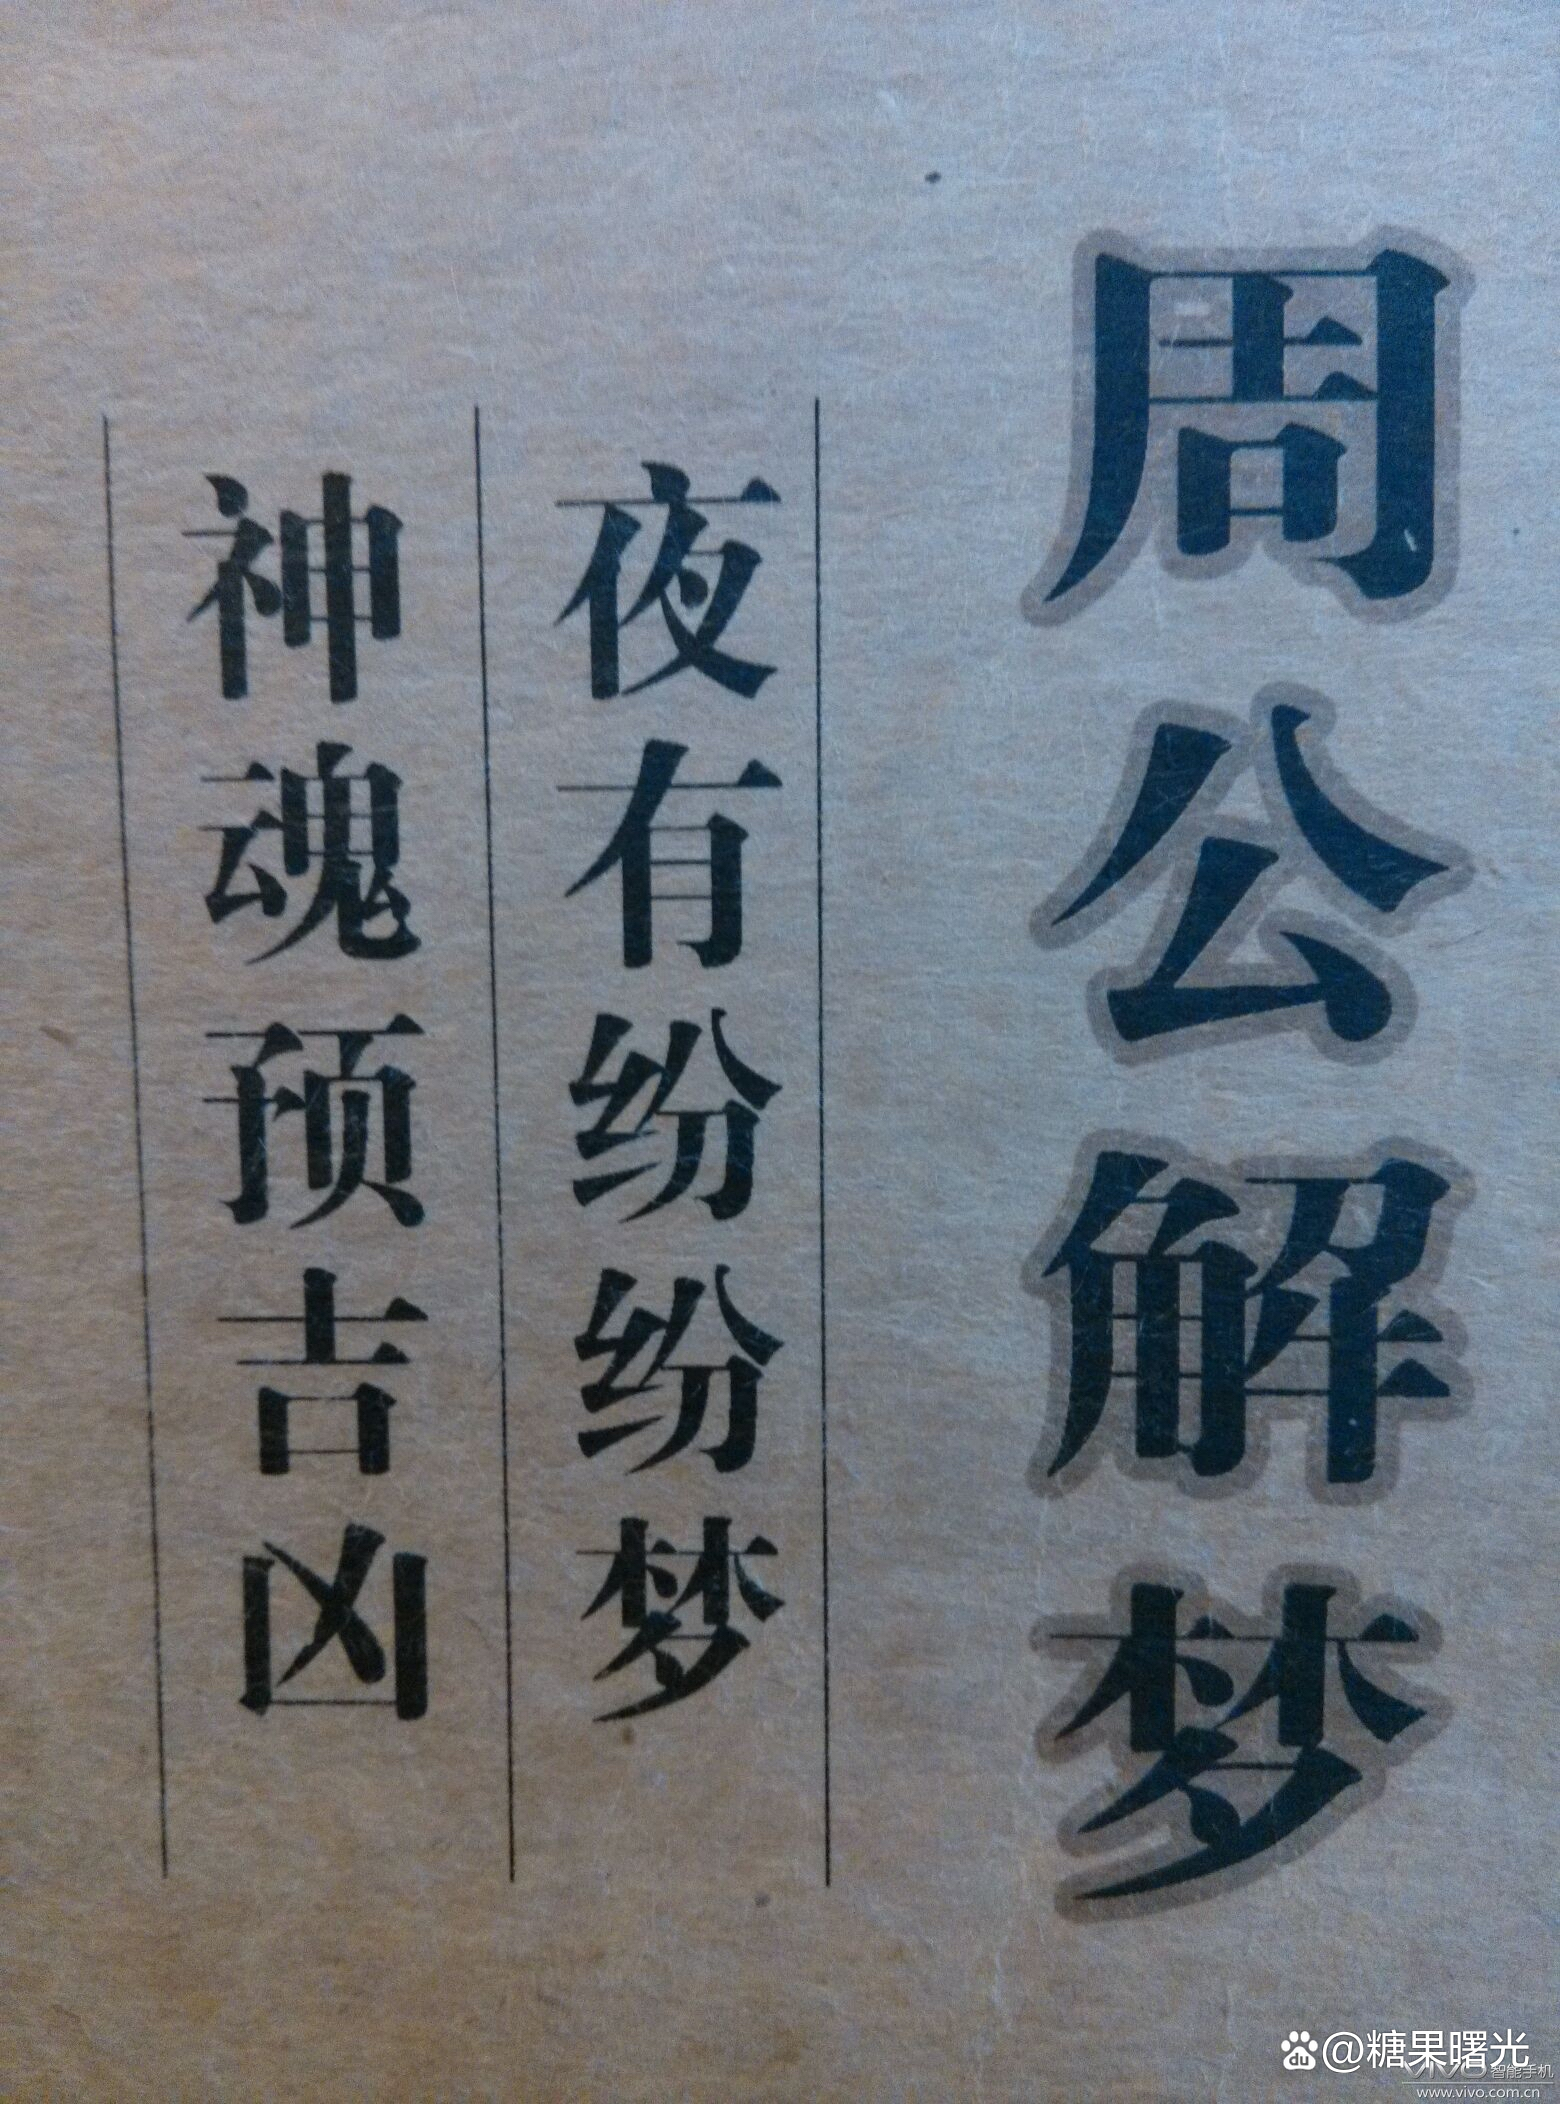 周公解梦
夜有纷纷梦
神魂预吉凶
@糖果曙光
vivo 智能手机
www.vivo.com.cn